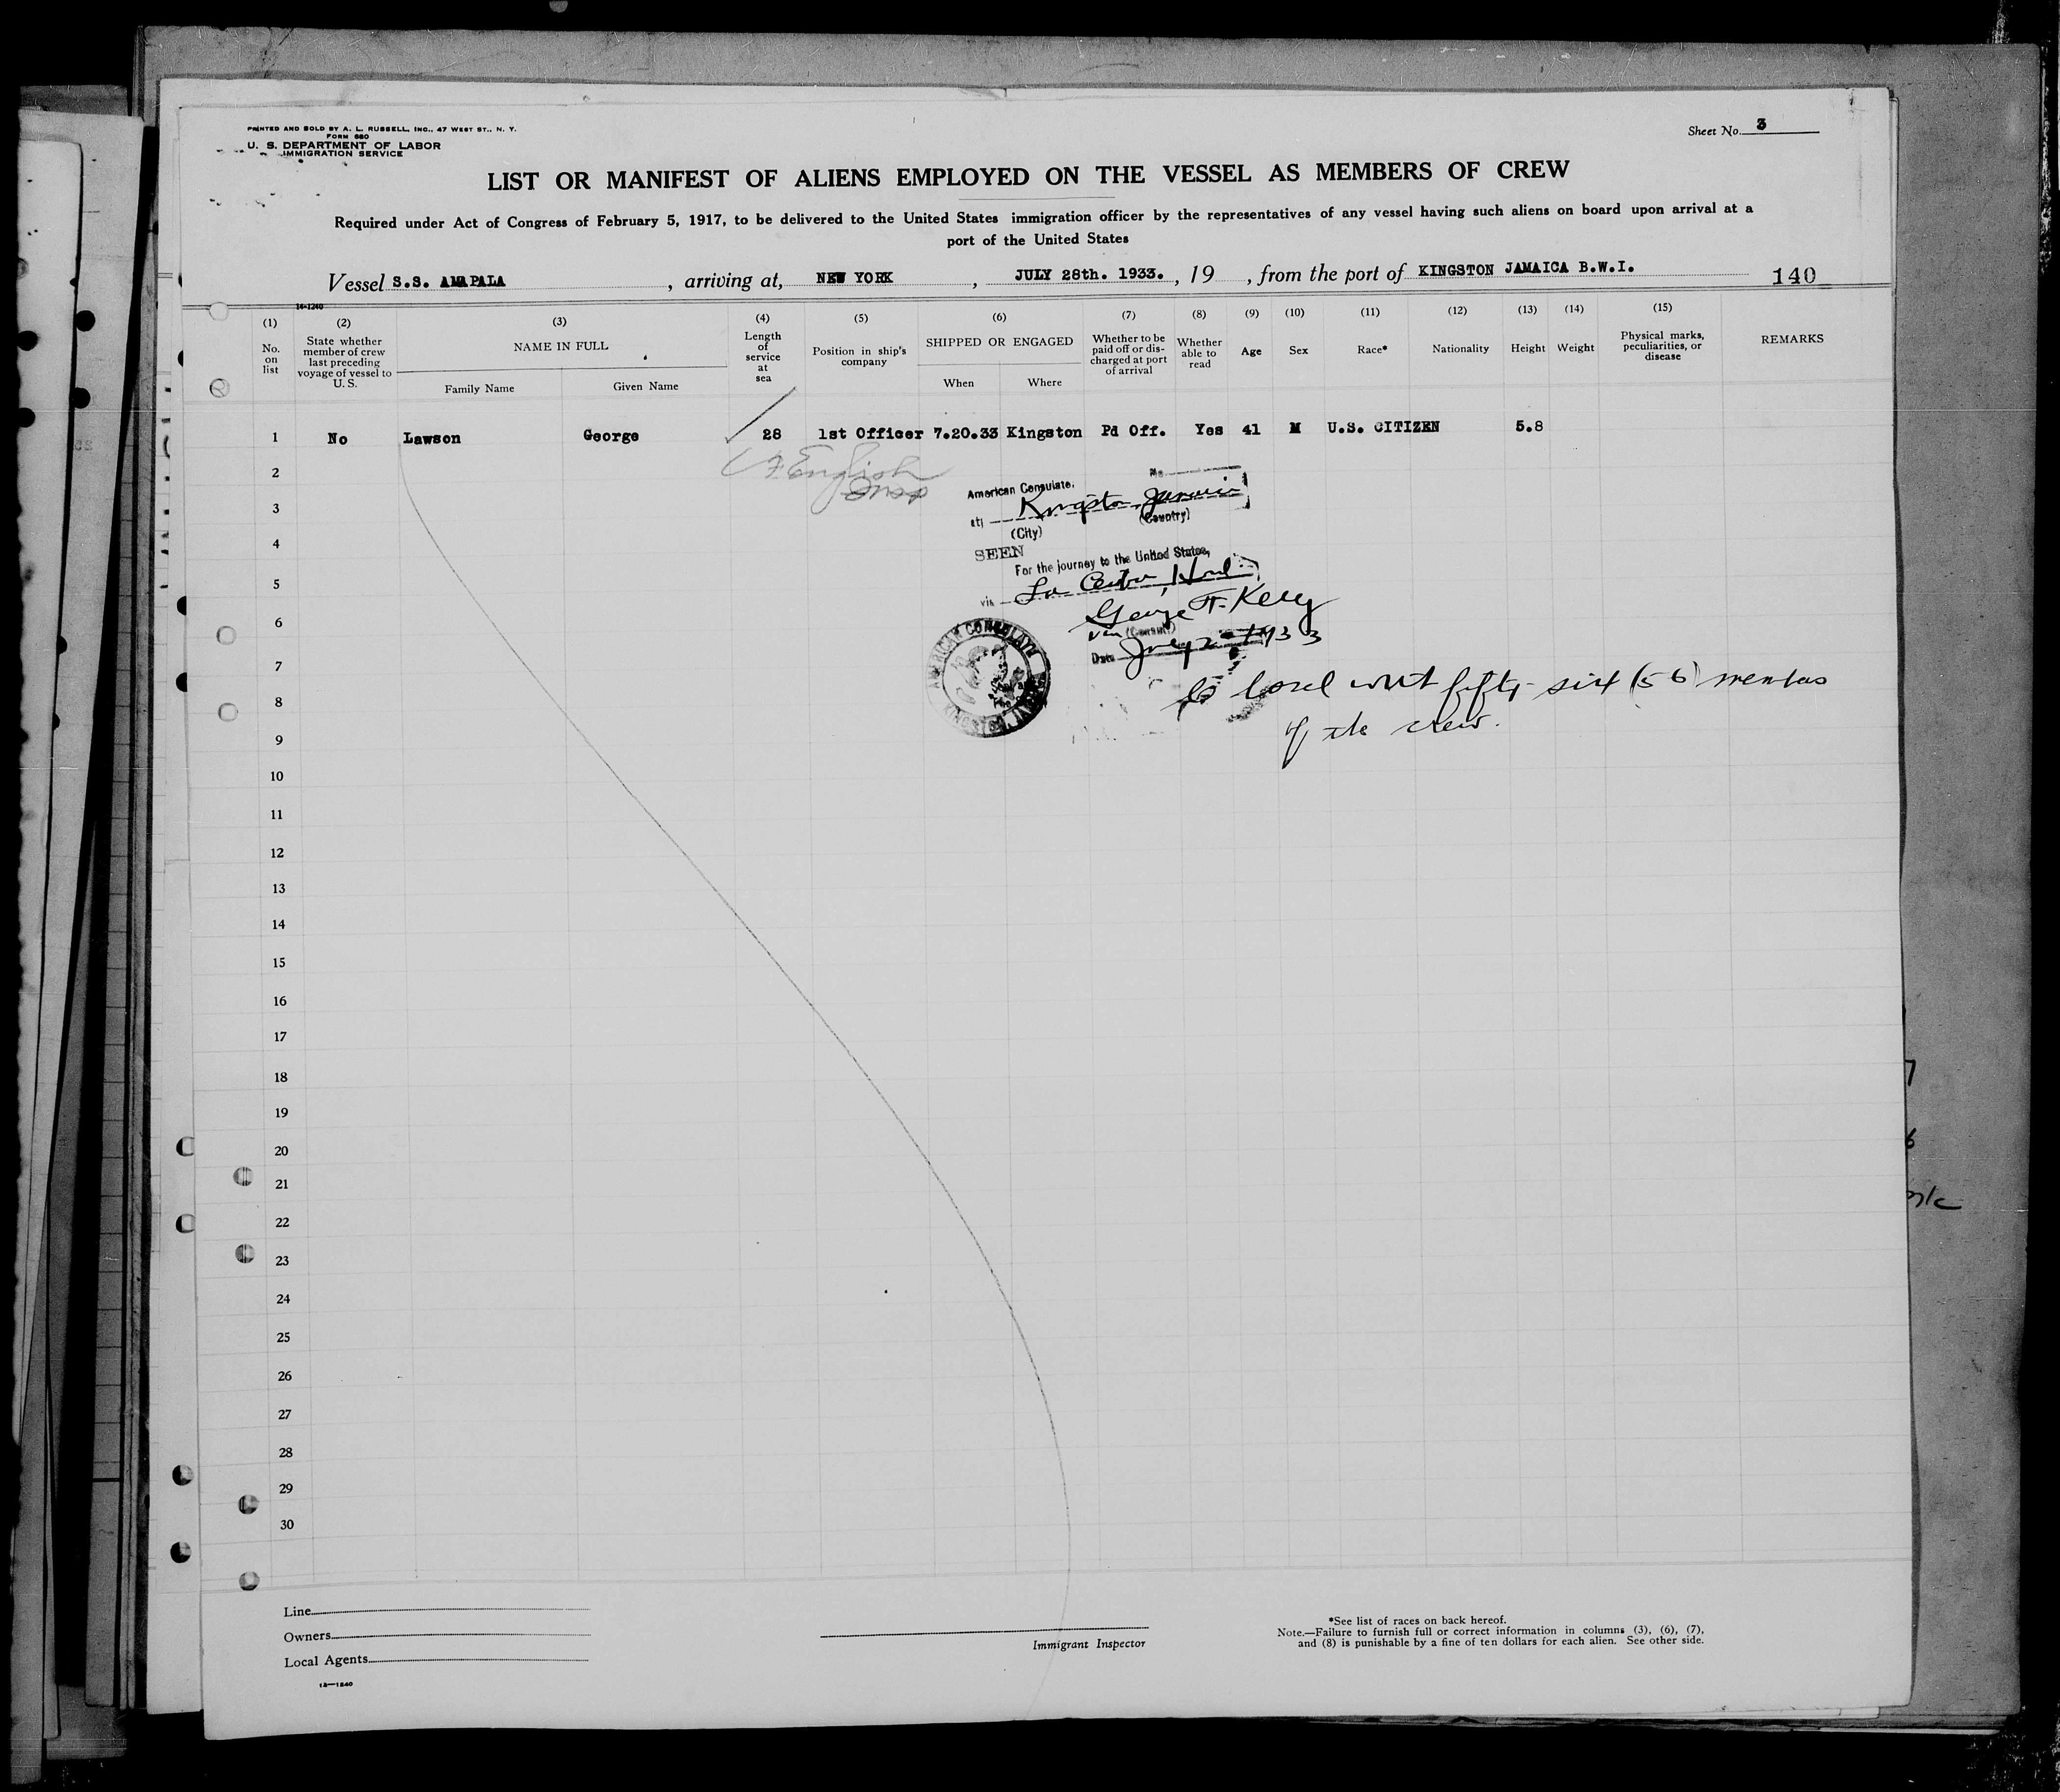 PRINTED AND SOLD BY A. L. RUSSELL, INC., 47 WEST ST., N. Y.
FORM 680
U. S. DEPARTMENT OF LABOR
IMMIGRATION SERVICE
Sheet No. 3
LIST OR MANIFEST OF ALIENS EMPLOYED ON THE VESSEL AS MEMBERS OF CREW
Required under Act of Congress of February 5, 1917, to be delivered to the United States immigration officer by the representatives of any vessel having such aliens on board upon arrival at a
port of the United States
Vessel S.S. AMAPALA, arriving at, NEW YORK, JULY 28th. 1933., 19, from the port of KINGSTON JAMAICA B.W.I. 140
14-1240
(1) (2) (3) (4) (5) (6) (7) (8) (9) (10) (11) (12) (13) (14) (15)
No. on list
State whether member of crew last preceding voyage of vessel to U. S.
NAME IN FULL
Family Name
Given Name
Length of service at sea
Position in ship's company
SHIPPED OR ENGAGED
When
Where
Whether to be paid off or discharged at port of arrival
Whether able to read
Age
Sex
Race*
Nationality
Height
Weight
Physical marks, peculiarities, or disease
REMARKS
1 No Lawson George 28 1st Officer 7.20.33 Kingston Pd Off. Yes 41 M U.S. CITIZEN 5.8
English
2
No
American Consulate.
3
at Kingston, Jamaica
(City) (Country)
4
SEEN
For the journey to the United States,
5
via La Ceiba, Hond.
6
George F. Kelly
(Consul)
Date July 2 1933
AMERICAN CONSULATE
KINGSTON, JAMAICA
7
fifty-six (56) members
8
of the crew.
9
10
11
12
13
14
15
16
17
18
19
20
21
22
23
24
25
26
27
28
29
30
Line
Owners
Local Agents
14—1240
Immigrant Inspector
*See list of races on back hereof.
Note.—Failure to furnish full or correct information in columns (3), (6), (7),
and (8) is punishable by a fine of ten dollars for each alien. See other side.